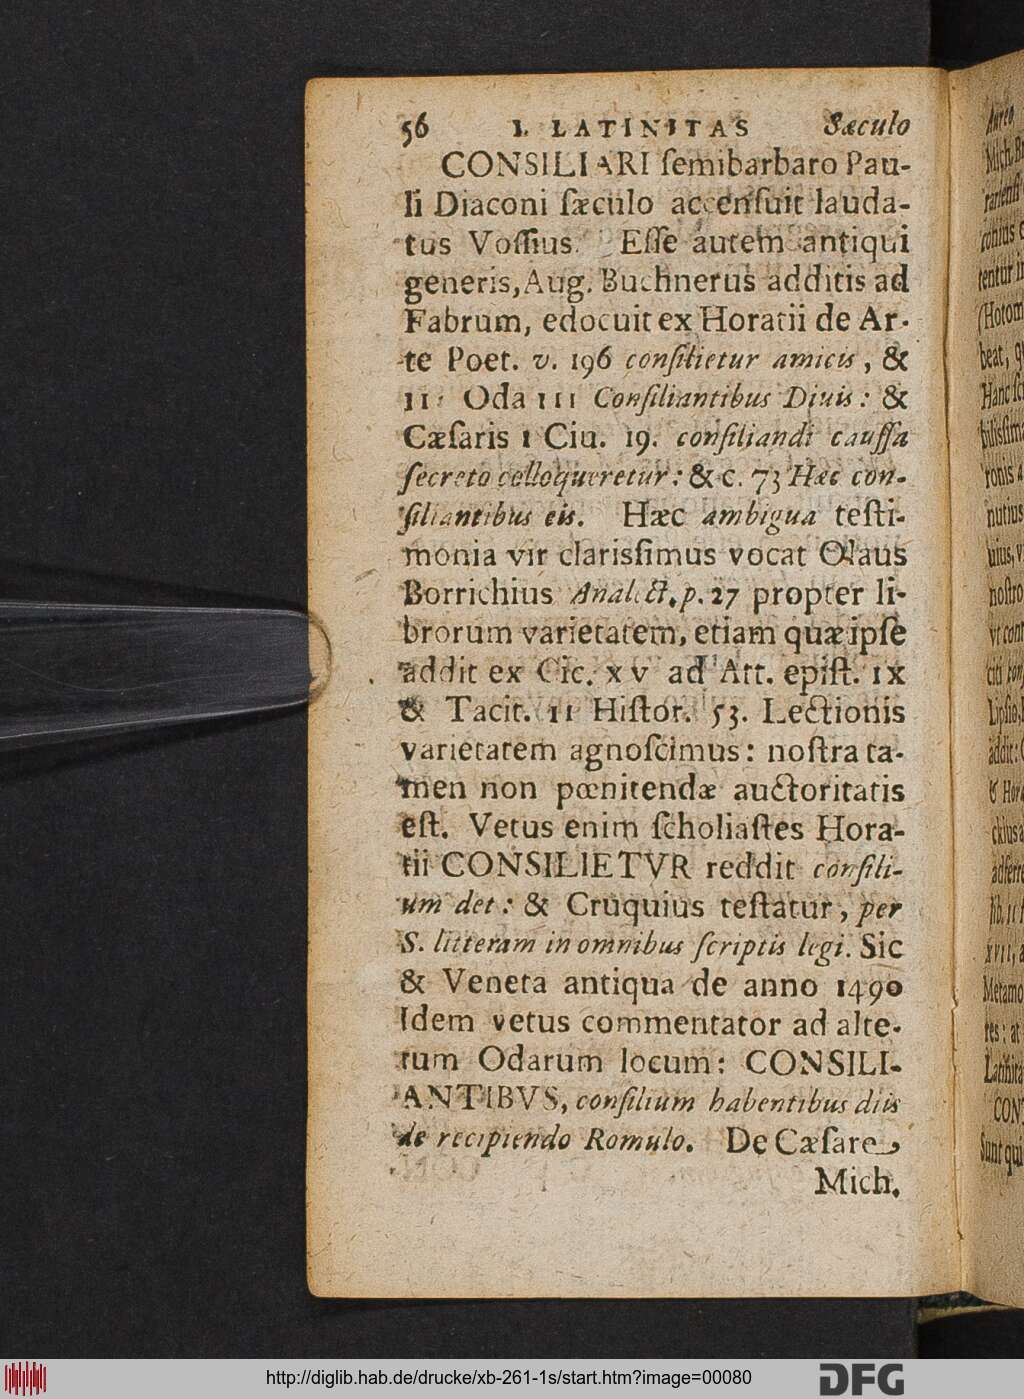 56 I. LATINITAS Sæculo
CONSILIARI ſemibarbaro Pau-
li Diaconi ſæculo accenſuit lauda-
tus Voſſius. Eſſe autem antiqui
generis, Aug. Buchnerus additis ad
Fabrum, edocuit ex Horatii de Ar-
te Poet. v. 196 conſilietur amicis, &
II. Oda III Conſiliantibus Diuis: &
Cæſaris I Ciu. 19. conſiliandi cauſſa
ſecreto colloqueretur: & c. 73 Hæc con-
ſiliantibus eis. Hæc ambigua teſti-
monia vir clarisſimus vocat Olaus
Borrichius Analect. p. 27 propter li-
brorum varietatem, etiam quæ ipſe
addit ex Cic. XV ad Att. epiſt. IX
& Tacit. II Hiſtor. 53. Lectionis
varietatem agnoſcimus: noſtra ta-
men non pœnitendæ auctoritatis
eſt. Vetus enim ſcholiaſtes Hora-
tii CONSILIETVR reddit conſili-
um det: & Cruquius teſtatur, per
S. litteram in omnibus ſcriptis legi. Sic
& Veneta antiqua de anno 1490
Idem vetus commentator ad alte-
rum Odarum locum: CONSILI-
ANTIBVS, conſilium habentibus diis
de recipiendo Romulo. De Cæſare
Mich.
Aureo
Mich. B
(Hotom
beat, q
nutius
uius, v
noſtro
Lipſio,
addit:
Metamo
tes: at
Latinita
CON
Sunt qui
http://diglib.hab.de/drucke/xb-261-1s/start.htm?image=00080
DFG